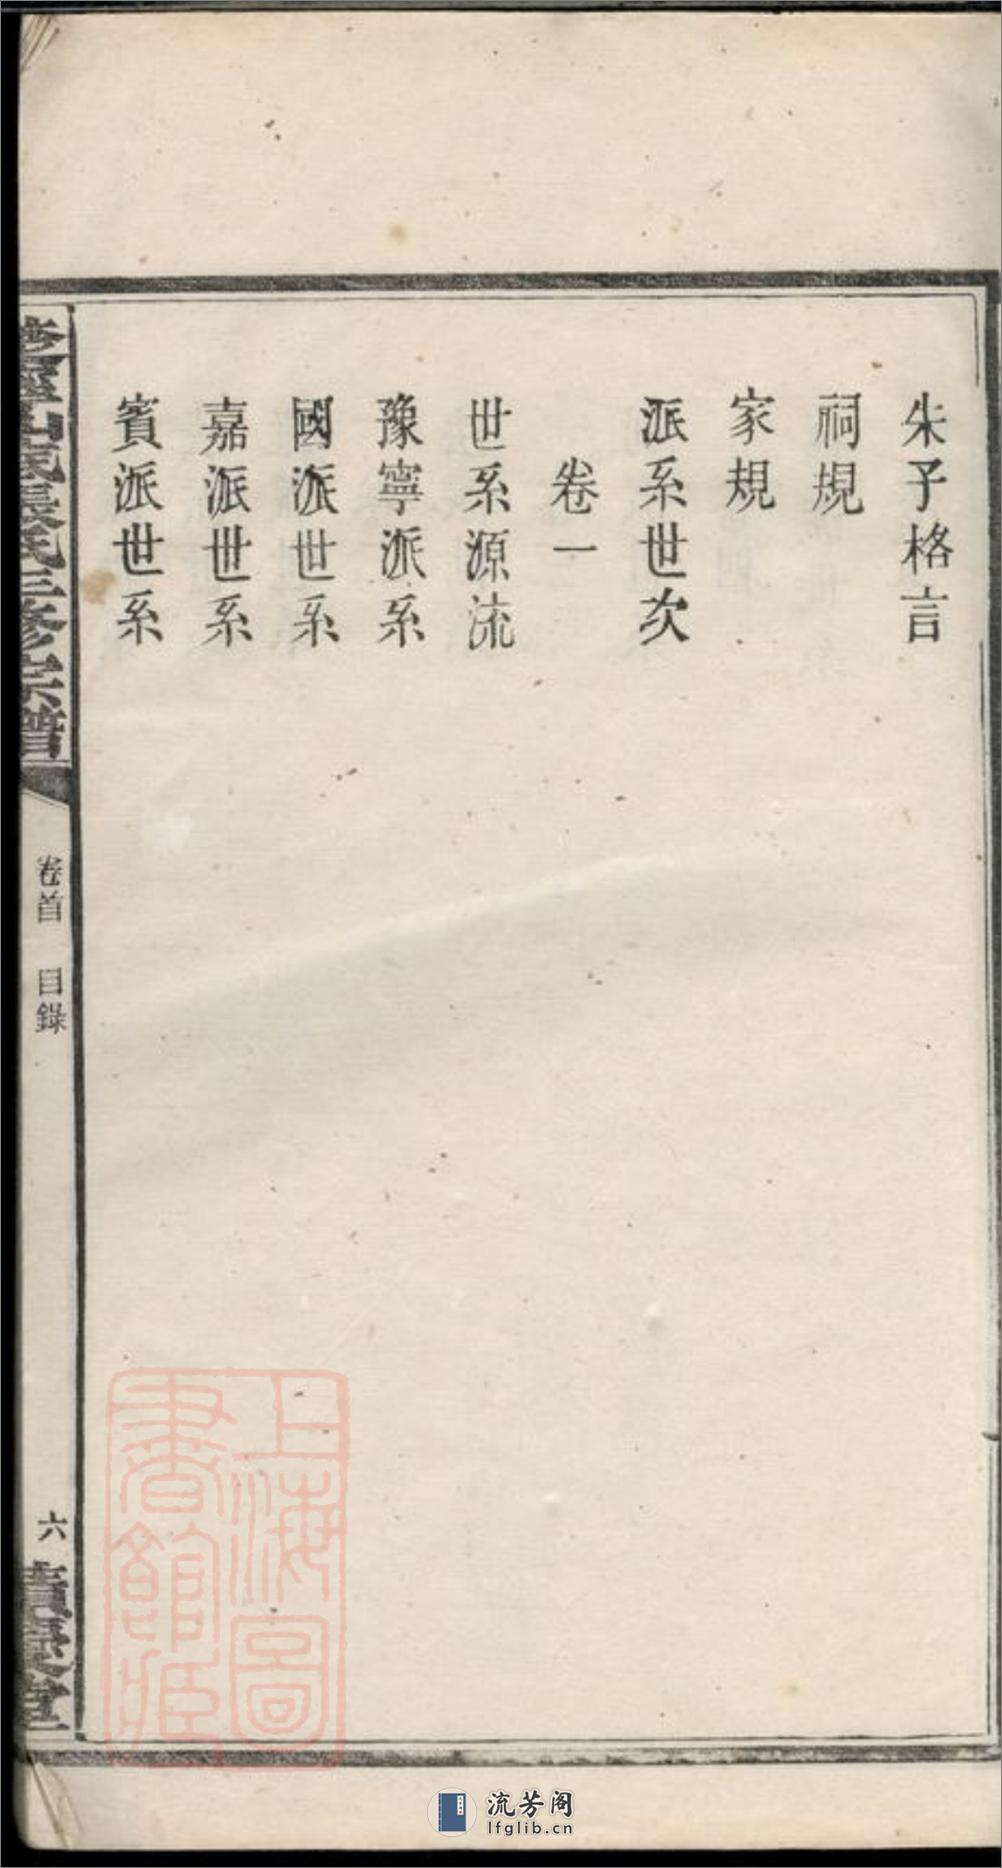 朱子格言
祠規
家規
派系世次
卷一
世系源流
豫寧派系
國派世系
嘉派世系
賓派世系
氏三修宗譜
卷首 目錄
六
堂
上海圖
書館藏
流芳阁
lfglib.cn